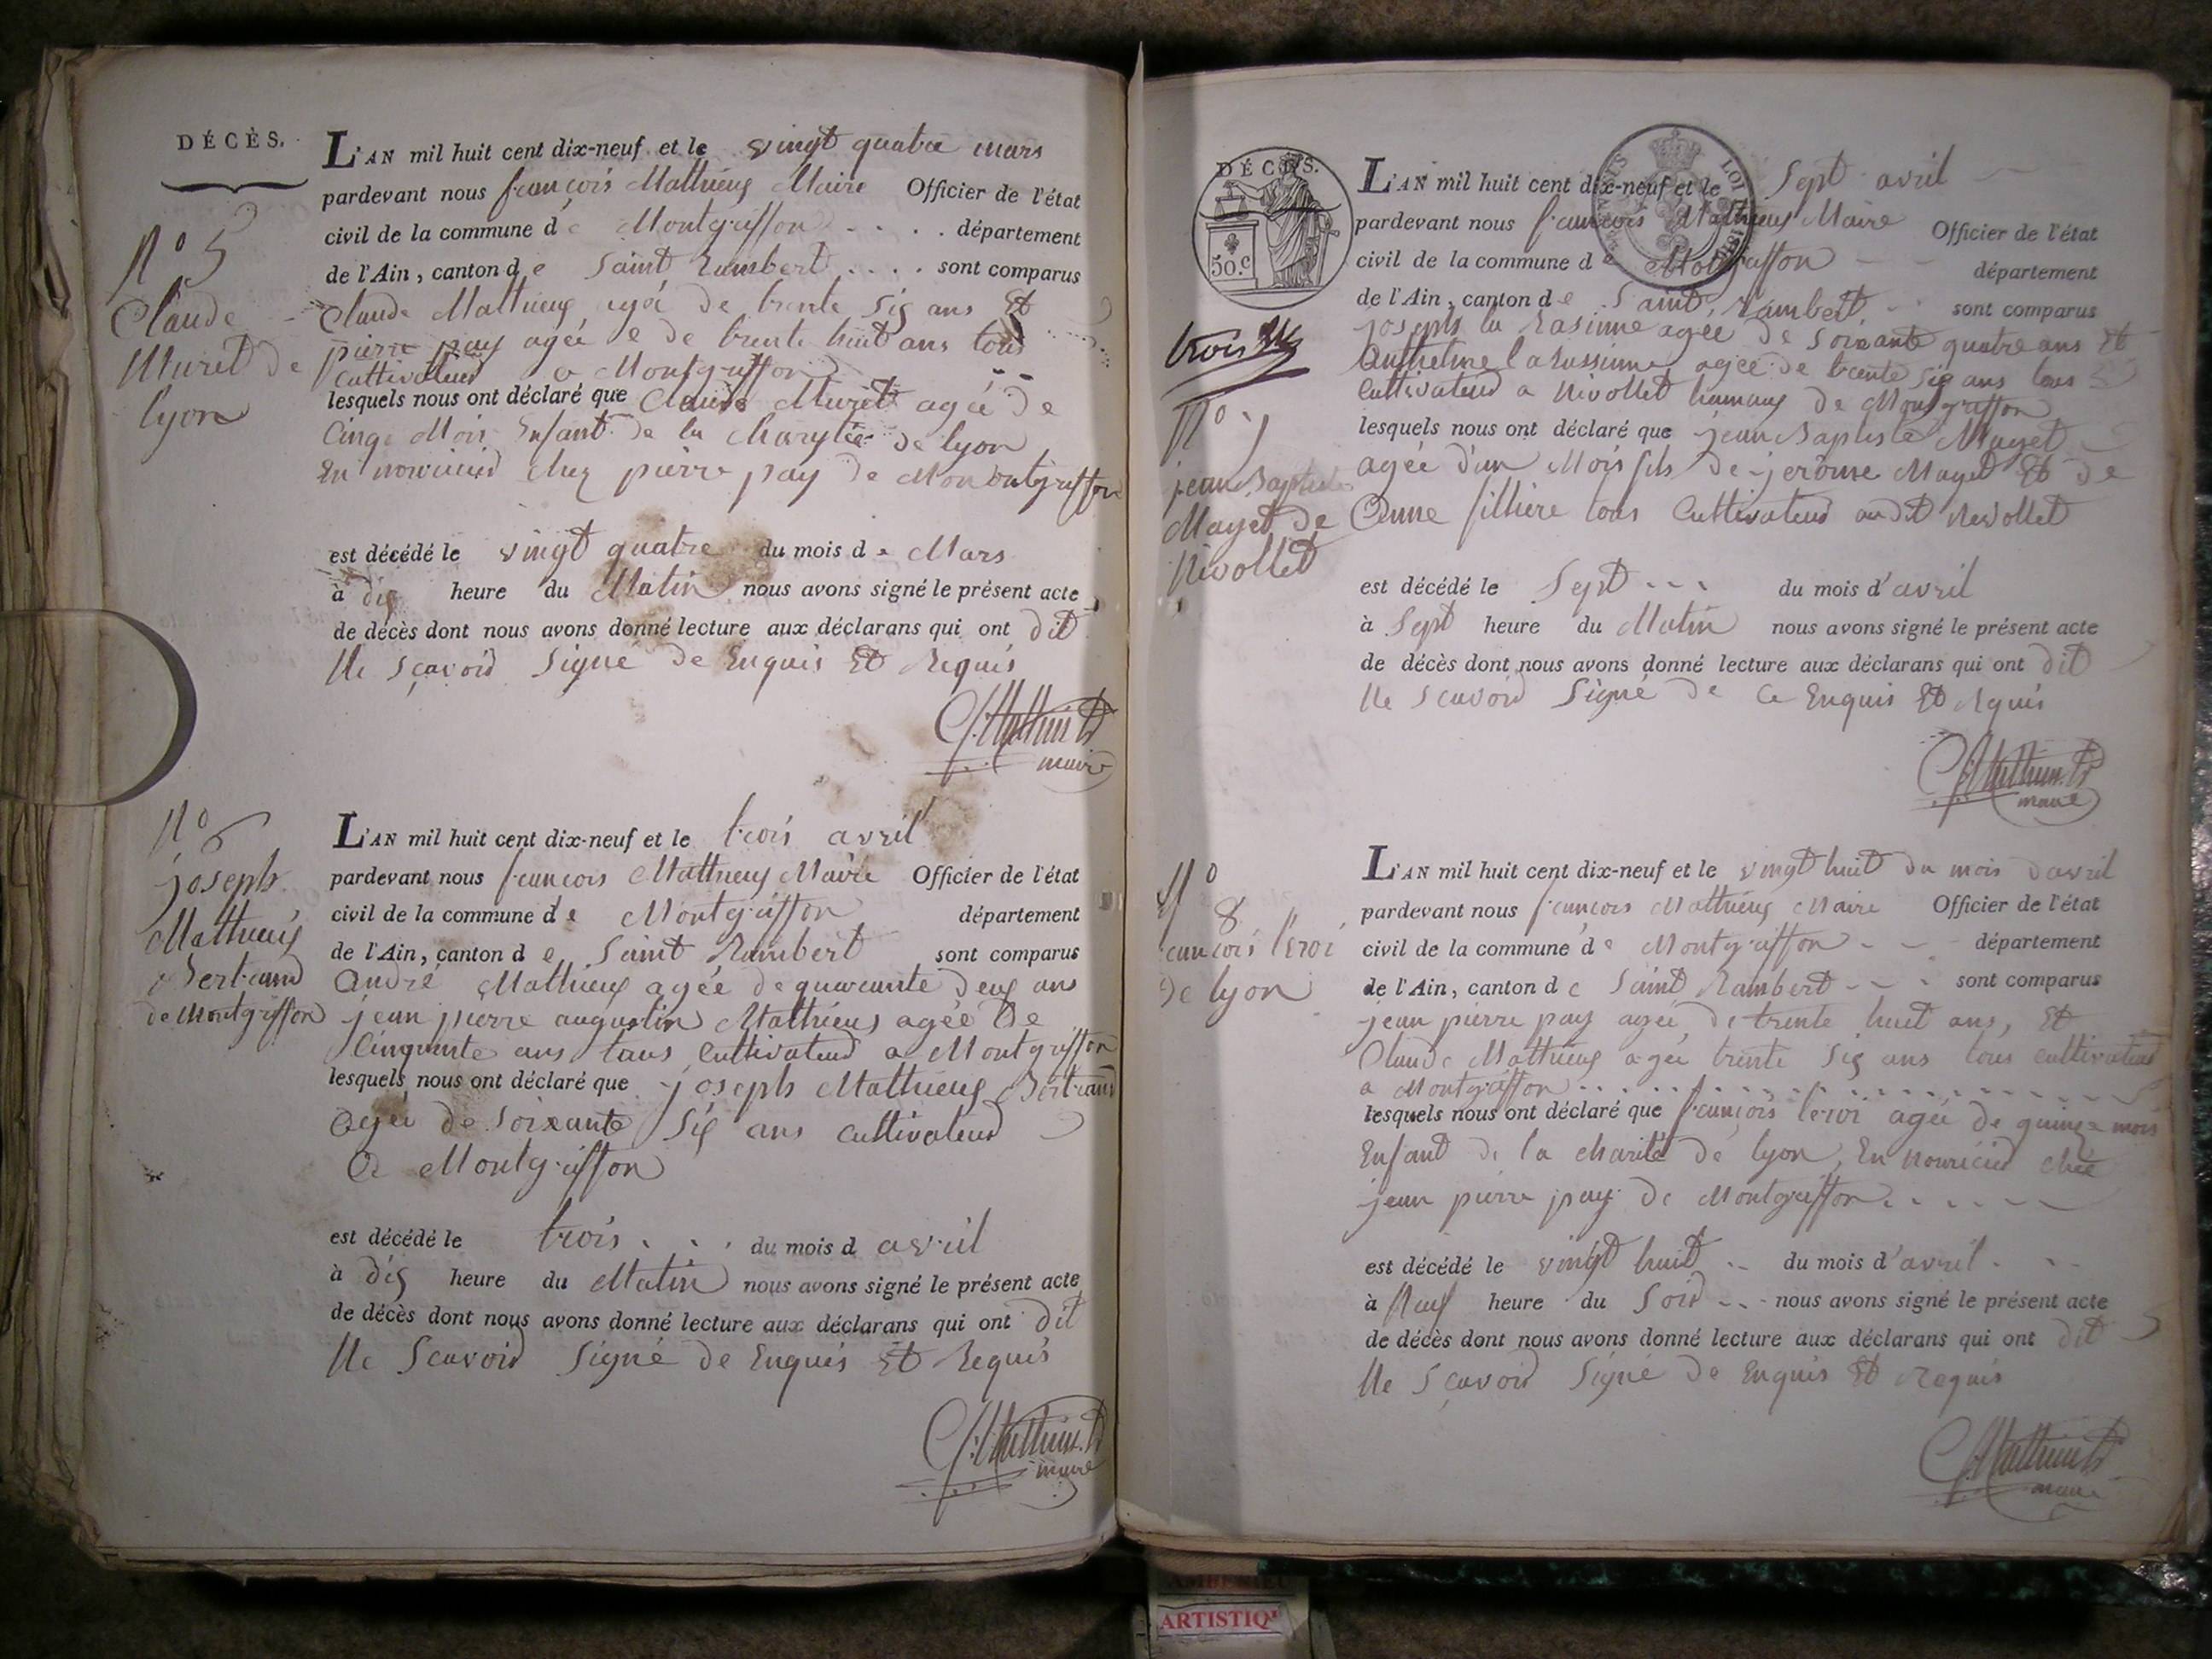 DÉCÈS.
N° 5
Claude
Muret de
lyon
L'AN mil huit cent dix-neuf et le vingt quatre mars
pardevant nous françois Mathieux Maire Officier de l'état
civil de la commune de Montgriffon département
de l'Ain, canton de Saint Rambert sont comparus
Claude Mathieux agée de trente Six ans Et
pierre pay agée e de trente huit ans tous
Cultivateur a Montgriffon
lesquels nous ont déclaré que Claude Muret agée de
Cinq Mois Enfant de la Charytée de lyon
En nourricie Chez pierre pay de Montgriffon
est décédé le vingt quatre du mois de Mars
à dix heure du Matin nous avons signé le présent acte
de décès dont nous avons donné lecture aux déclarans qui ont dit
Ne Sçavoir Signé de Enquis Et Requis
maire
N° 6
joseph
Mathieux
Bertrand
de Montgriffon
L'AN mil huit cent dix-neuf et le trois avril
pardevant nous françois Mathieux Maire Officier de l'état
civil de la commune de Montgriffon département
de l'Ain, canton de Saint Rambert sont comparus
andré Mathieux agée de quarante deux ans
jean pierre augustin Mathieux agée De
Cinquante ans tous Cultivateur a Montgriffon
lesquels nous ont déclaré que joseph Mathieux Bertrand
agée de Soixante Six ans Cultivateur
a Montgriffon
est décédé le trois du mois d avril
à dix heure du Matin nous avons signé le présent acte
de décès dont nous avons donné lecture aux déclarans qui ont dit
Ne Scavoir Signé de Enquis Et Requis
maire
DÉCÈS.
50.c
trois
N° 7
jean Baptiste
Mayet de
Nivollet
L'AN mil huit cent dix-neuf et le Sept avril
pardevant nous françois Mathieux Maire Officier de l'état
civil de la commune de Montgriffon département
de l'Ain, canton de Saint Rambert sont comparus
joseph la Rasinne agée de Soixante quatre ans Et
Anthelme la Rassinne agée de trente Six ans tous
Cultivateur a Nivollet hamaux de Montgriffon
lesquels nous ont déclaré que jean Baptiste Mayet
agée d'un Mois fils de jerôme Mayet Et de
Anne fillière tous Cultivateur audit Nivollet
est décédé le Sept du mois d'avril
à Sept heure du Matin nous avons signé le présent acte
de décès dont nous avons donné lecture aux déclarans qui ont dit
Ne Scavoir Signé de Ce Enquis Et Rquis
maire
N° 8
françois l'eroi
de lyon
L'AN mil huit cent dix-neuf et le vingt huit du mois davril
pardevant nous françois Mathieux Maire Officier de l'état
civil de la commune de Montgriffon département
de l'Ain, canton de Saint Rambert sont comparus
jean pierre pay agée de trente huit ans, Et
Claude Mathieux agée trente Six ans tous cultivateur
a Montgriffon
lesquels nous ont déclaré que françois leroi agée de quinze mois
Enfant de la charité de lyon, En nourricie chée
jean pierre pay de Montgriffon
est décédé le vingt huit du mois d'avril
à Neuf heure du Soir nous avons signé le présent acte
de décès dont nous avons donné lecture aux déclarans qui ont dit
Ne Sçavoir Signé de Enquis Et Requis
maire
ARTISTIQ